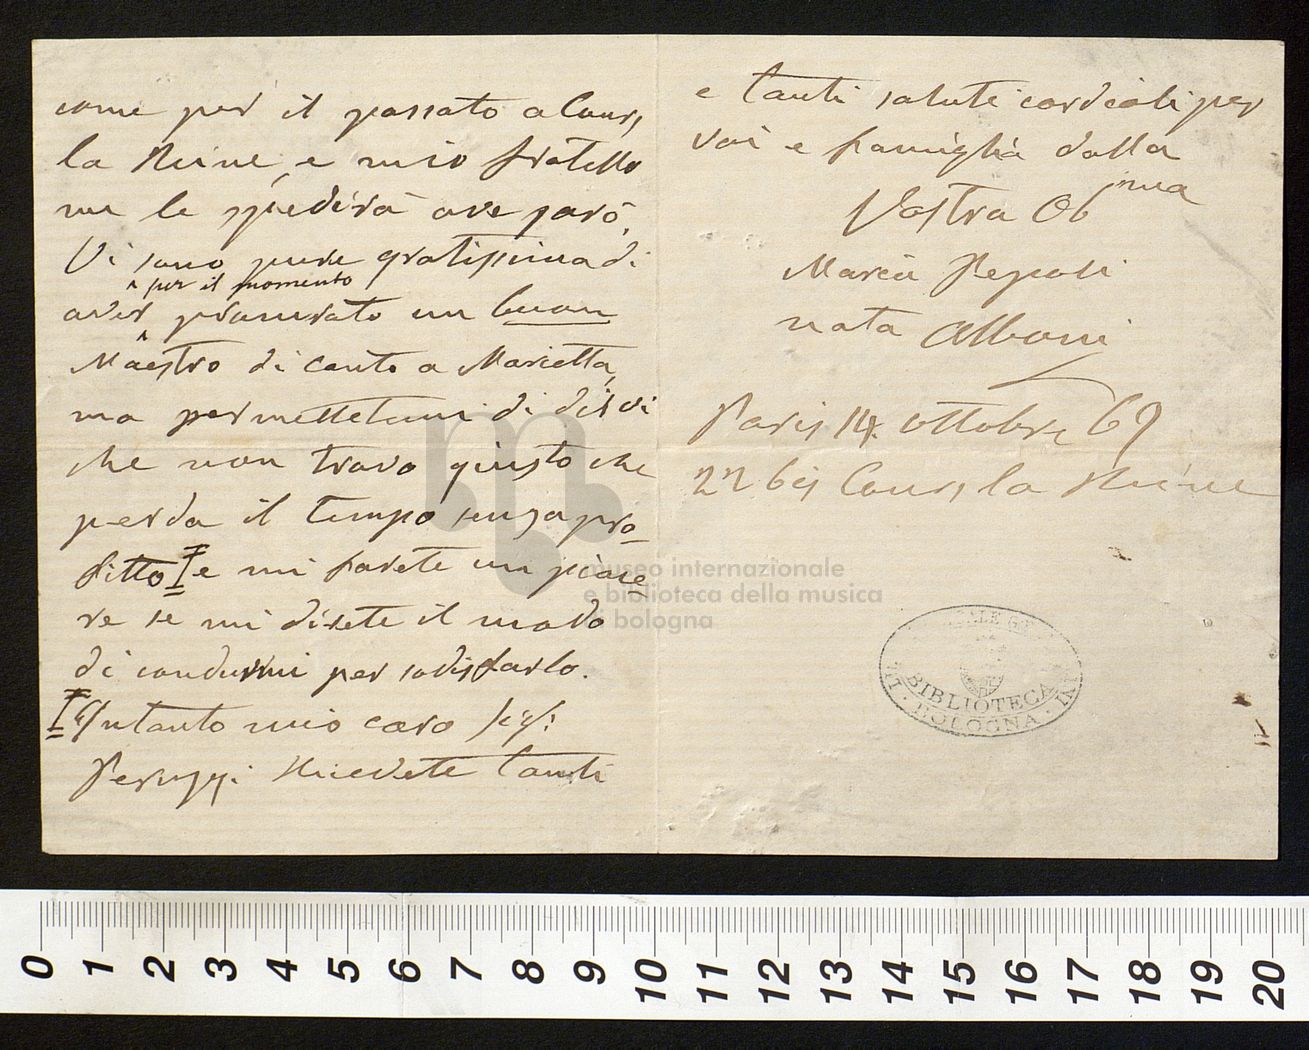 come per il passato a Cours
la Reine, e mio fratello
me le spedirà ove sarò,
Vi sono pure gratissima di
per il momento
aver procurato un buon
Maestro di canto a Marietta,
ma permettetemi di dirvi
che non trovo giusto che
perda il tempo senza pro-
fitto e mi farete un piace
re se mi direte il modo
di condurmi per sodisfarlo.
Intanto mio caro Sigr
Peruzzi Ricevete tanti
e tanti saluti cordiali per
voi e famiglia dalla
Vostra Obma
Maria Pepoli
nata Alboni
Paris 14 ottobre 69
22 bis Cours la Reine
museo internazionale
e biblioteca della musica
di bologna
BIBLIOTECA
BOLOGNA
0 1 2 3 4 5 6 7 8 9 10 11 12 13 14 15 16 17 18 19 20